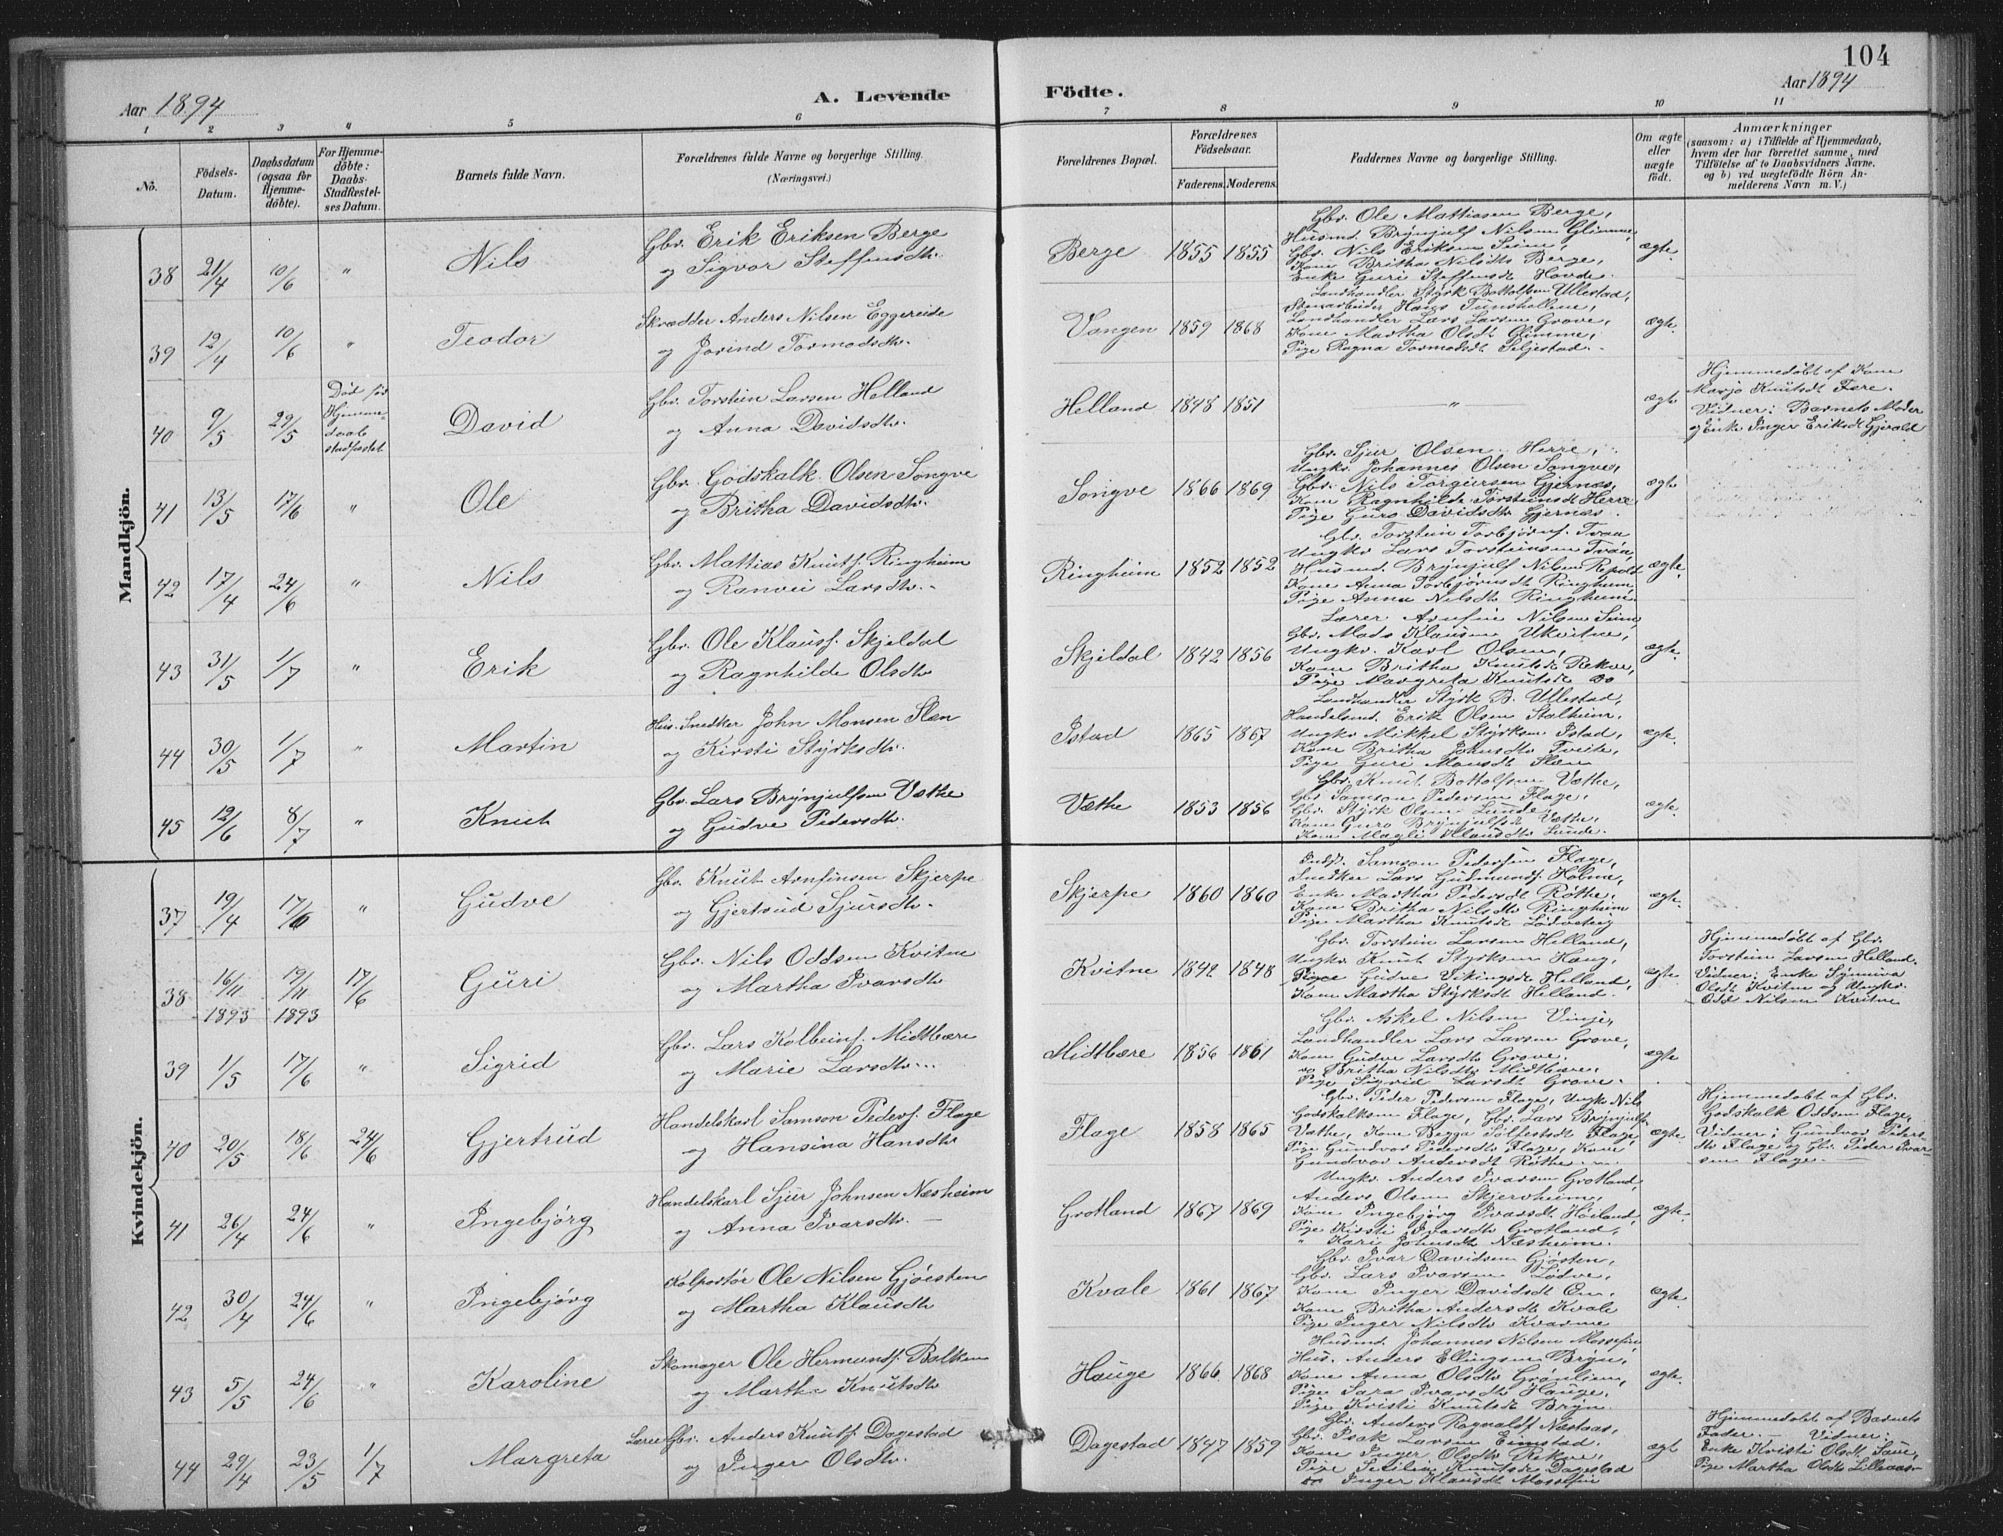 104
Aar 1894
A. Levende Födte.
Aar 1894
1 2 3 4 5 6 7 8 9 10 11
No.
Födsels-Datum.
Daabsdatum (ogsaa for Hjemmedöbte).
For Hjemmedöbte: Daabs-Stadfæstelses Datum.
Barnets fulde Navn.
Forældrenes fulde Navne og borgerlige Stilling.
(Næringsvei.)
Forældrenes Bopæl.
Forældrenes Födselsaar.
Faderens. Moderens.
Faddernes Navne og borgerlige Stilling.
Om ægte eller uægte födt.
Anmærkninger
(saasom: a) i Tilfælde af Hjemmedaab, hvem der har forrettet samme, med Tilföielse af to Daabsvidners Navne, og b) ved uægtefödte Börn Anmelderens Navn m. V.)
Mandkjön.
38 21/4 10/6 " Nils Gbr. Erik Eriksen Berge
og Sigvor Steffensdtr. Berge 1855 1855 ægte
Gbr. Ole Mattiasen Berge,
Husmd. Brynjulf Nilsen Glimme,
Gbr. Nils Eriksen Seim,
Kone Britha Nilsdtr Berge,
Enke Guri Steffensdt Hovde.
39 12/4 10/6 " Teodor Skrædder Anders Nilsen Eggereide
og Jorind Tormodsdtr. Vangen 1859 1868 ægte
Landhandler Styrk Bottolfsen Ullestad,
Landhandler Lars Larsen Grove,
Kone Martha Olsdt Glimme,
Pige Ragna Tormodsdt Seljestad.
40 9/5 29/5 Død før Hjemmedaab stadfæstet David Gbr. Torstein Larsen Helland
og Anna Davidsdtr. Helland 1848 1851 " ægte
Hjemmedøbt af Kone
Marjo Knutsdt Fære.
Vidner: Barnets Moder
og Enke Inger Eriksdt Gjerald
41 13/5 17/6 " Ole Gbr. Godskalk Olsen Songve
og Britha Davidsdtr. Songve 1866 1869 ægte
Gbr. Sjur Olsen Herre,
Ungkr. Johannes Olsen Songve,
Gbr. Nils Torgiersen Gjernes,
Kone Ragnhilde Torsteinsdt Herre
Pige Guro Davidsdtr Gjernes.
42 17/4 24/6 " Nils Gbr. Mattias Knutsf. Ringheim
og Ranvei Larsdtr. Ringheim 1852 1852 ægte.
Gbr. Torstein Torbjørnsf. Tvøn
Ungkr. Lars Torsteinsen Tvøn,
Husmd. Brynjulf Nilsen Repolt
Kone Anna Torbjørnsdt Ringheim,
Pige Anna Nilsdt Ringheim.
43 31/5 1/7 " Erik Gbr. Ole Klausf. Skjeldal
og Ragnhilde Olsdtr Skjeldal 1842 1856 ægte
Lærer Arnfin Nilsen Seim
Gbr. Mads Klausen Ukvitne,
Ungkr. Karl Olsen,
Kone Britha Knutsdt Rekve,
Pige Margreta Knutsdt do
44 30/5 1/7 " Martin Hus. Snedker John Monsen Slæn
og Kirsti Styrksdtr. Istad 1865 1867 ægte.
Landhandler Styrk B. Ullestad,
Handelsmd. Erik Olsen Stalheim,
Ungkr Mikkel Styrksen Istad,
Kone Britha Johnsdtr Tveite,
Pige Guri Monsdt Slæn
45 12/6 8/7 " Knut Gbr. Lars Brynjulfsen Væthe
og Gudve Pedersdtr. Væthe 1853 1856 ægte.
Gbr. Knut Bottolfsen Væthe,
Gbr Samson Pedersen Flage,
Gbr. Styrk Olsen Lunde,
Kone Guro Brynjulfsdt Væthe,
Kone Magli Klausdtr Lunde.
Kvindekjön.
37 19/4 17/6 " Gudve Gbr. Knut Arnfinsen Skjerpe
og Gjertrud Sjursdtr. Skjerpe 1860 1860 ægte.
Indst. Samson Pedersen Flage,
Snedker Lars Gudmundsf. Holme,
Enke Martha Pedersdt Røthe,
Kone Britha Nilsdtr Ringheim
Pige Martha Knutsdt Lødvesteig
38 16/11 1893 19/11 1893 17/6 Guri Gbr. Nils Oddsen Kvitne
og Martha Ivarsdtr Kvitne 1842 1848 ægte.
Gbr. Torstein Larsen Helland,
Ungkr. Knut Styrksen Haug,
Pige Gudve Vikingsdt Helland,
Kone Martha Styrksdt Helland.
Hjemmedøbt af Gbr.
Torstein Larsen Helland.
Vidner: Enke Synneva
Olsdt Kvitne og Ungkr.
Odd Nilsen Kvitne
39 1/5 17/6 " Sigrid Gbr. Lars Kolbeinsf. Midtbære
og Marie Larsdtr. Midtbære 1856 1861 ægte
Gbr. Askel Nilsen Vinje,
Landhandler Lars Larsen Grove,
Kone Gudve Larsdtr Grove.
do Britha Nilsdtr Midtbære,
Pige Sigrid Larsdt Grove.
40 20/5 18/6 24/6 Gjertrud Handelskarl Samson Pedersf. Flage
og Hansina Hansdtr Flage 1858 1865 ægte
Gbr. Peder Pedersen Flage, Ungkr Nils
Godskalksen Flage, Gbr. Lars Brynjulfsen
Væthe, Kone Begga Sølfestsdt Flage,
Pige Gundvor Pedersdtr Flage, Kone
Gundvor Andersdt Røthe.
Hjemmedøbt af Gbr.
Godskalk Oddsen Flage,
Vidner: Gundvor Peders-
dtr Flage og Gbr. Peder Ivar-
sen Flage.
41 26/4 24/6 " Ingebjörg Handelskarl Sjur Johnsen Næsheim
og Anna Ivarsdtr. Grotland 1867 1869 ægte
Ungkr. Anders Ivarsen Grotland,
Anders Olsen Skjervheim,
Kone Ingebjørg Ivarsdt Høiland,
Pige Kirsti Ivarsdtr Grotland,
" Kari Johnsdtr Næsheim.
42 30/4 24/6 " Ingebjörg Kolportör Ole Nilsen Gjøesten
og Martha Klausdtr Kvale 1861 1867 ægte.
Gbr. Ivar Davidsen Gjøsten,
Gbr. Lars Ivarsen Lødve,
Kone Inger Davidsdt Øn,
Kone Britha Andersdt Kvale
Pige Inger Nilsdtr Kvarme
43 5/5 24/6 " Karoline Skomager Ole Hermundsf. Bolken
og Martha Knutsdtr Hauge 1866 1868 ægte.
Husmd. Johannes Nilsen Mossefin
Hus. Anders Ellingsen Bryn,
Kone Anna Olsdtr Grønlien,
Pige Sara Ivarsdtr Hauge,
Pige Kristi Knutsdt Bryn.
44 29/4 23/5 1/7 Margreta Gbr. Anders Knutsf. Dagestad
og Inger Olsdtr. Dagestad 1847 1859 ægt
Gbr. Anders Ragnaldsf Næstaas,
Gbr. Isak Larsen Eimstad.
Kone Inger Olsdtr Rekve,
Pige Sicilia Knutsdt Dagestad
do Inger Klausdt Mossefin
Hjemmedøbt af Barnets
Fader. Vidner:
Enke Kristi Olsdt Saue,
Pige Martha Olsdtr Lilleaas